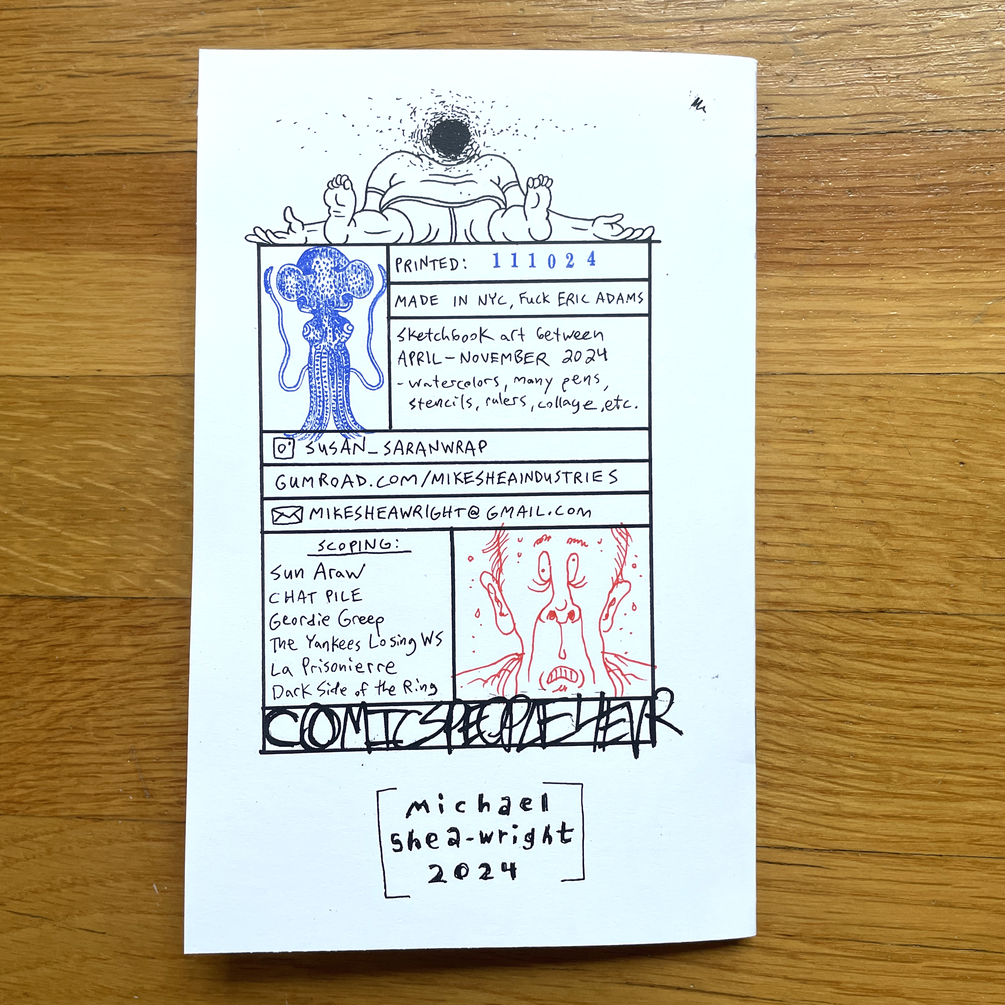 PRINTED: 111024
MADE IN NYC, FUCK ERIC ADAMS
Sketchbook art between
APRIL - NOVEMBER 2024
- watercolors, many pens,
stencils, rulers, collage, etc.
SUSAN_SARANWRAP
GUMROAD.COM/MIKESHEAINDUSTRIES
MIKESHEAWRIGHT@GMAIL.COM
SCOPING:
Sun Araw
CHAT PILE
Geordie Greep
The Yankees Losing WS
La Prisonierre
Dark Side of the Ring
COMICSPEOPLE4EVR
michael
shea-wright
2024